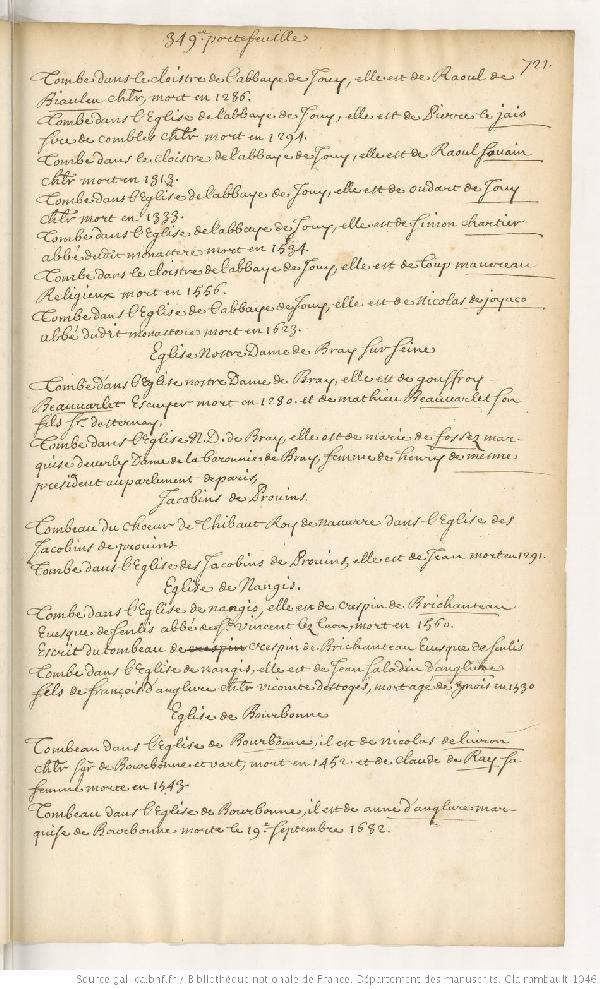 349.e portefeuille
721.
Tombe dans le cloistre de l'abbaye de Jouy, elle est de Raoul de
Biaulen chlr, mort en 1286.
Tombe dans l'Eglise de l'abbaye de Jouy, elle est de Pierre le jais
sire de combles chlr mort en 1294.
Tombe dans le cloistre de l'abbaye de Jouy, elle est de Raoul
chlr mort en 1313.
Tombe dans l'Eglise de l'abbaye de Jouy, elle est de oudart de Jouy
chlr mort en 1333.
Tombe dans l'Eglise de l'abbaye de Jouy, elle est de simon chartier
abbé dudit monastere mort en 1534.
Tombe dans le cloistre de l'abbaye de Jouy, elle est de Loup mauereau
Religieux mort en 1556.
Tombe dans l'Eglise de l'abbaye de Jouy, elle est de Nicolas de
abbé dudit monastere mort en 1623.
Eglise Nostre Dame de Bray sur seine
Tombe dans l'Eglise nostre Dame de Bray, elle est de gouffroy
Beauuarlet Escuyer mort en 1280. et de mathieu Beauuarlet son
fils sr. de ternay.
Tombe dans l'Eglise N. D. de Bray, elle est de marie de fossez mar-
quise Dame de la baronnie de Bray, femme de henry de mesme
president au parlement de paris,
Jacobins de Prouins.
Tombeau du choeur de Thibaut Roy de nauarre dans l'Eglise des
Jacobins de prouins
Tombe dans l'Eglise des Jacobins de Prouins, elle est de Jean mort en 1291.
Eglise de Nangis.
Tombe dans l'Eglise de nangis, elle en de crespin de Brichanteau
Euesque de senlis abbé de st. Vincent lez Laon, mort en 1560.
Escrit du tombeau de crespin crespin de Brichanteau Euesque de senlis
Tombe dans l'Eglise de nangis, elle est de Jean saladin d'anglure
fils de françois d'anglure chlr vicomte d'estoges, mort agé de 3 mois en 1530
Eglise de Bourbonne
Tombeau dans l'Eglise de Bourbonne, il est de nicolas de liuron
chlr sgr. de Bourbonne et vart, mort en 1452. et de claude de Ray sa
femme morte en 1543
Tombeau dans l'Eglise de Bourbonne, il est de anne d'anglure mar-
quise de Bourbonne morte le 19.e septembre 1682.
Source gallica.bnf.fr / Bibliothèque nationale de France. Département des manuscrits. Clairambault 1046